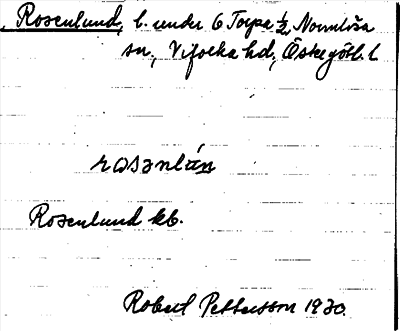 Rosenlund, l. under 6 Torpa 1/2, Normlösa
sn, Vifolka hd, Östergötl. l.
rωsənlán
Rosenlund kb.
Robert Pettersson 1930.